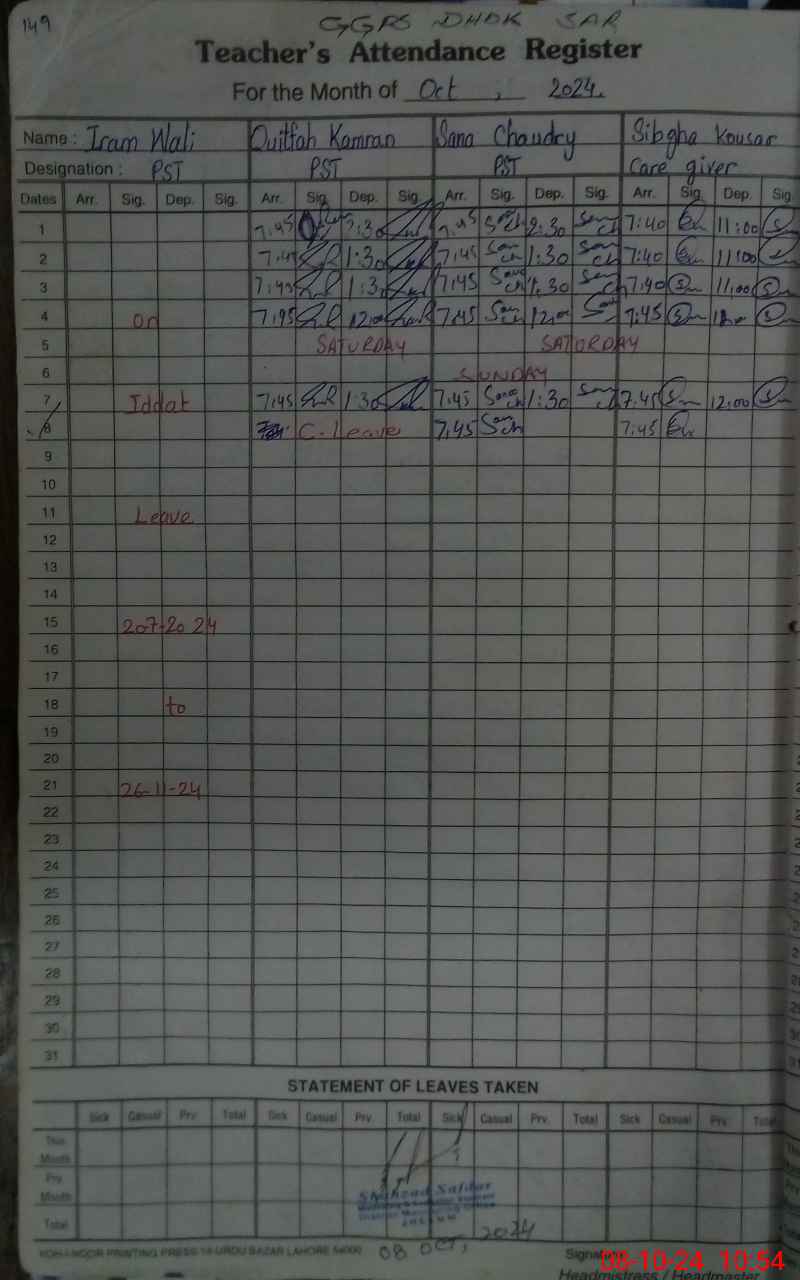 149
GGPS DHOK SAR
Teacher's Attendance Register
For the Month of Oct, 2024.
Name : Iram Wali Quitfah Kamran Sana Chaudry Sibgha Kousar
Designation : PST PST PST Care giver
Dates Arr. Sig. Dep. Sig. Arr. Sig. Dep. Sig. Arr. Sig. Dep. Sig. Arr. Sig. Dep. Sig.
1 7:45 2:30 7:45 2:30 7:40 11:00
2 7:45 1:30 7:45 1:30 7:40 11:00
3 7:45 1:30 7:45 1:30 7:40 11:00
4 on 7:45 12:00 7:45 12:00 7:45
5 SATURDAY SATURDAY
6 SUNDAY
7 Iddat 7:45 1:30 7:45 1:30 7:45 12:00
8 C. Leave 7:45 7:45
9
10
11 Leave
12
13
14
15 207-2024
16
17
18 to
19
20
21 26-11-24
22
23
24
25
26
27
28
29
30
31
STATEMENT OF LEAVES TAKEN
Sick Casual Prv. Total Sick Casual Prv. Total Sick Casual Prv. Total Sick Casual Prv. Total
This Month
Prv. Month
Total
Shahzad Safdar
08 OCT, 2024
KOHANOOR PRINTING PRESS 14-URDU BAZAR LAHORE 54000
Signature
08-10-24 10:54
Headmistress / Headmaster